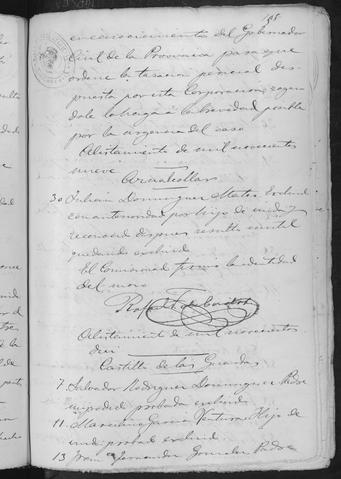 155
en conocimiento del Gobernador
Civil de la Provincia para que
ordene la tasacion pericial dis-
puesta por esta Corporacion rogan
dole lo haga a la brevedad posible
por la urgencia del caso
Alistamiento de mil novecientos
nueve
Aznalcollar
30 Julian Dominguez Mateo excluid
con anterioridad por hijo de viuda y
reconocid despues resultó inutil
quedando excluid
El Comisionad la identidad
del mozo
Rafael
Alistamiento de mil novecientos
diez
Castillo de las Guardas
7. Salvador Rodriguez Dominguez Padre
impedid probada excluid
11. Garcia Ventura Hijo de
viuda probad excluid
13 Juan Fernandez Gonzalez Padre